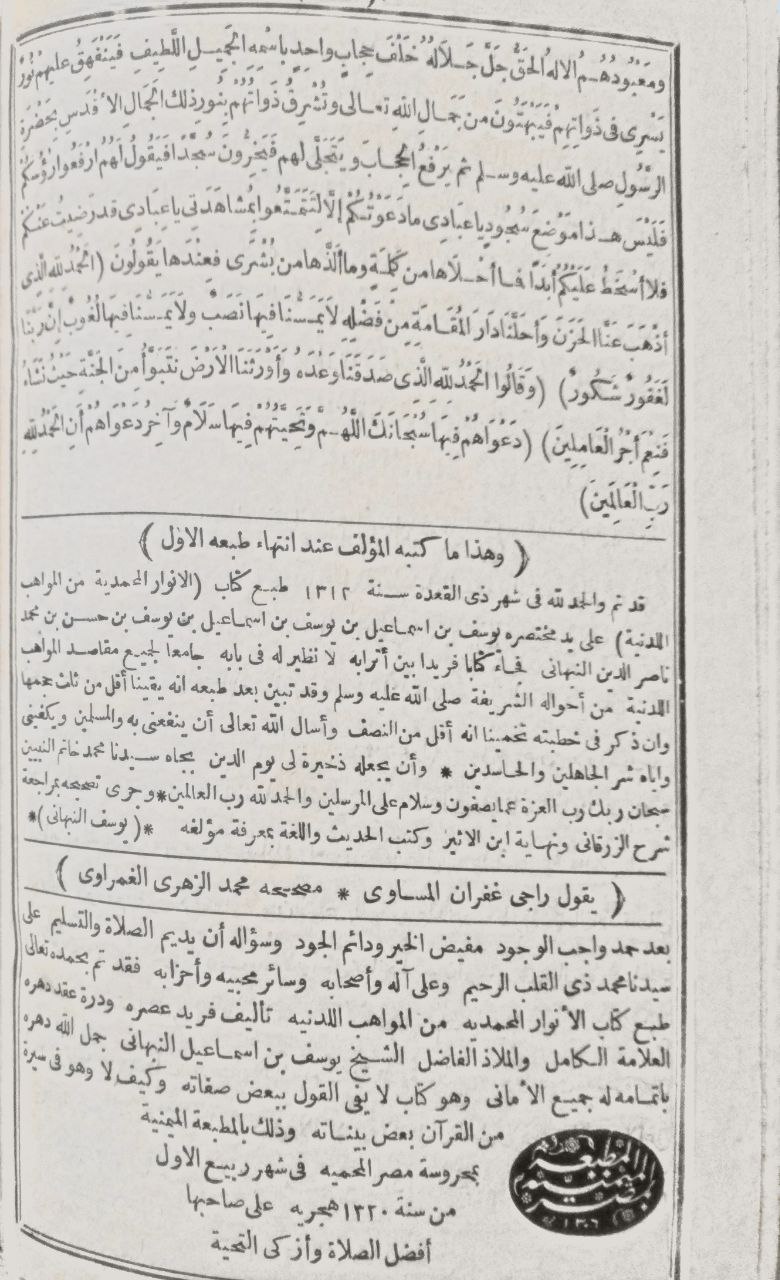 ومَعْبُودُهُمُ الالهُ الحَقُّ جَلَّ جَلَالُهُ خَلْفَ حِجَابٍ واحدٍ باسْمِهِ الجَمِيلِ اللَّطِيفِ فَيَنْفَهِقُ عليهم نُورٌ
يَسْرِى فى ذَوَاتِهِمْ فَيَبْهَتُونَ من جَمَالِ اللهِ تعالى وتُشْرِقُ ذَوَاتُهُمْ بِنُورِ ذلك الجَمَالِ الأَقْدَسِ بِحَضْرَةِ
الرسُولِ صلى الله عليه وسلم ثم يَرْفَعُ الحِجَابَ ويَتَجَلَّى لهم فَيَخِرُّونَ سُجَّدًا فَيَقُولُ لَهُمُ ارْفَعُوا رُؤُسَكُمْ
فَلَيْسَ هذا مَوْضِعَ سُجُودٍ ياعِبَادِى مادَعَوْتُكُمْ إلَّا لِتَتَمَتَّعُوا بِمُشَاهَدَتِى ياعِبَادِى قدرَضِيتُ عَنْكُمْ
فلا أَسْخَطُ عَلَيْكُمْ أَبَدًا فما أَحْلَاها من كَلِمَةٍ وما أَلَذَّها من بُشْرَى فعِنْدَها يَقُولُونَ (الحَمْدُ للهِ الَّذِى
أَذْهَبَ عَنَّا الحَزَنَ وَأَحَلَّنَا دَارَ المُقَامَةِ مِنْ فَضْلِهِ لَايَمَسُّنَا فِيهَا نَصَبٌ ولَايَمَسُّنَا فِيهَا لُغُوبٌ إنَّ رَبَّنَا
لَغَفُورٌ شَكُورٌ) (وَقَالُوا الحَمْدُ للهِ الَّذِى صَدَقَنَا وَعْدَهُ وَأَوْرَثَنَا الْأَرْضَ نَتَبَوَّأُ مِنَ الجَنَّةِ حَيْثُ نَشَاءُ
فَنِعْمَ أَجْرُ الْعَامِلِينَ) (دَعْوَاهُمْ فِيهَا سُبْحَانَكَ اللَّهُمَّ وَتَحِيَّتُهُمْ فِيهَا سَلَامٌ وآخِرُ دَعْوَاهُمْ أَنِ الحَمْدُ للهِ
رَبِّ الْعَالَمِينَ)
(وهذا ما كتبه المؤلف عند انتهاء طبعه الاول)
قد تم والحمد لله فى شهر ذى القعدة سنة ١٣١٢ طبع كتاب (الانوار المحمدية من المواهب
اللدنية) على يد مختصره يوسف بن اسماعيل بن يوسف بن اسماعيل بن يوسف بن حسن بن محمد
ناصر الدين النبهانى فجاء كتابا فريدا بين أترابه لا نظير له فى بابه جامعا لجميع مقاصد المواهب
اللدنية من أحواله الشريفة صلى الله عليه وسلم وقد تبين بعد طبعه انه يقينا أقل من ثلث حجمها
وان ذكر فى خطبته تخمينا انه أقل من النصف وأسال الله تعالى أن ينفعنى به والمسلمين ويكفينى
واياه شر الجاهلين والحاسدين * وأن يجعله ذخيرة لى يوم الدين بجاه سيدنا محمد خاتم النبيين
سبحان ربك رب العزة عما يصفون وسلام على المرسلين والحمد لله رب العالمين*وجرى تصحيحه بمراجعة
شرح الزرقانى ونهاية ابن الاثير وكتب الحديث واللغة بمعرفة مؤلفه *(يوسف النبهانى)*
(يقول راجى غفران المساوى * مصححه محمد الزهرى الغمراوى)
بعد حمد واجب الوجود مفيض الخير ودائم الجود وسؤاله أن يديم الصلاة والتسليم على
سيدنا محمد ذى القلب الرحيم وعلى آله وأصحابه وسائر محبيه وأحزابه فقد تم بحمده تعالى
طبع كتاب الأنوار المحمديه من المواهب اللدنيه تأليف فريد عصره ودرة عقد دهره
العلامة الكامل والملاذ الفاضل الشيخ يوسف بن اسماعيل النبهانى جمل الله دهره
باتمامه له جميع الأمانى وهو كتاب لا يفى القول ببعض صفاته وكيف لا وهو فى سيرة
من القرآن بعض بيناته وذلك بالمطبعة الميمنية
بمحروسة مصر المحميه فى شهر ربيع الاول
من سنة ١٣٢٠ هجريه على صاحبها
أفضل الصلاة وأزكى التحية
المطبعة
الميمنية
بمصر
١٣٠٦